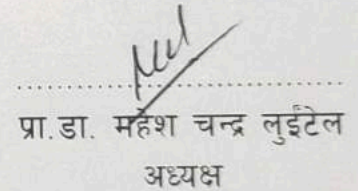 प्रा.डा. महेश चन्द्र लुईटेल
अध्यक्ष